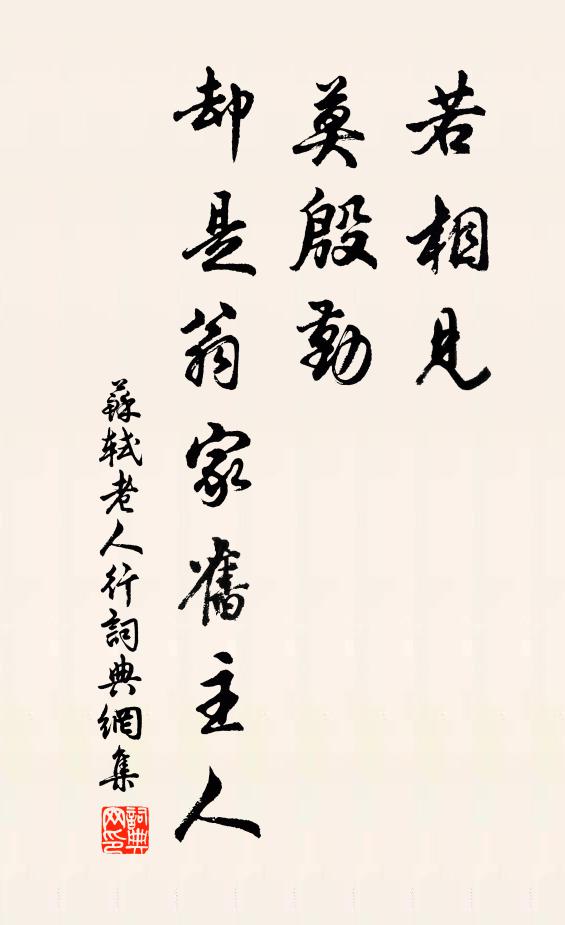 若相見
莫殷勤
却是翁家舊主人
蘇軾老人行詞典網集
詞典
网印